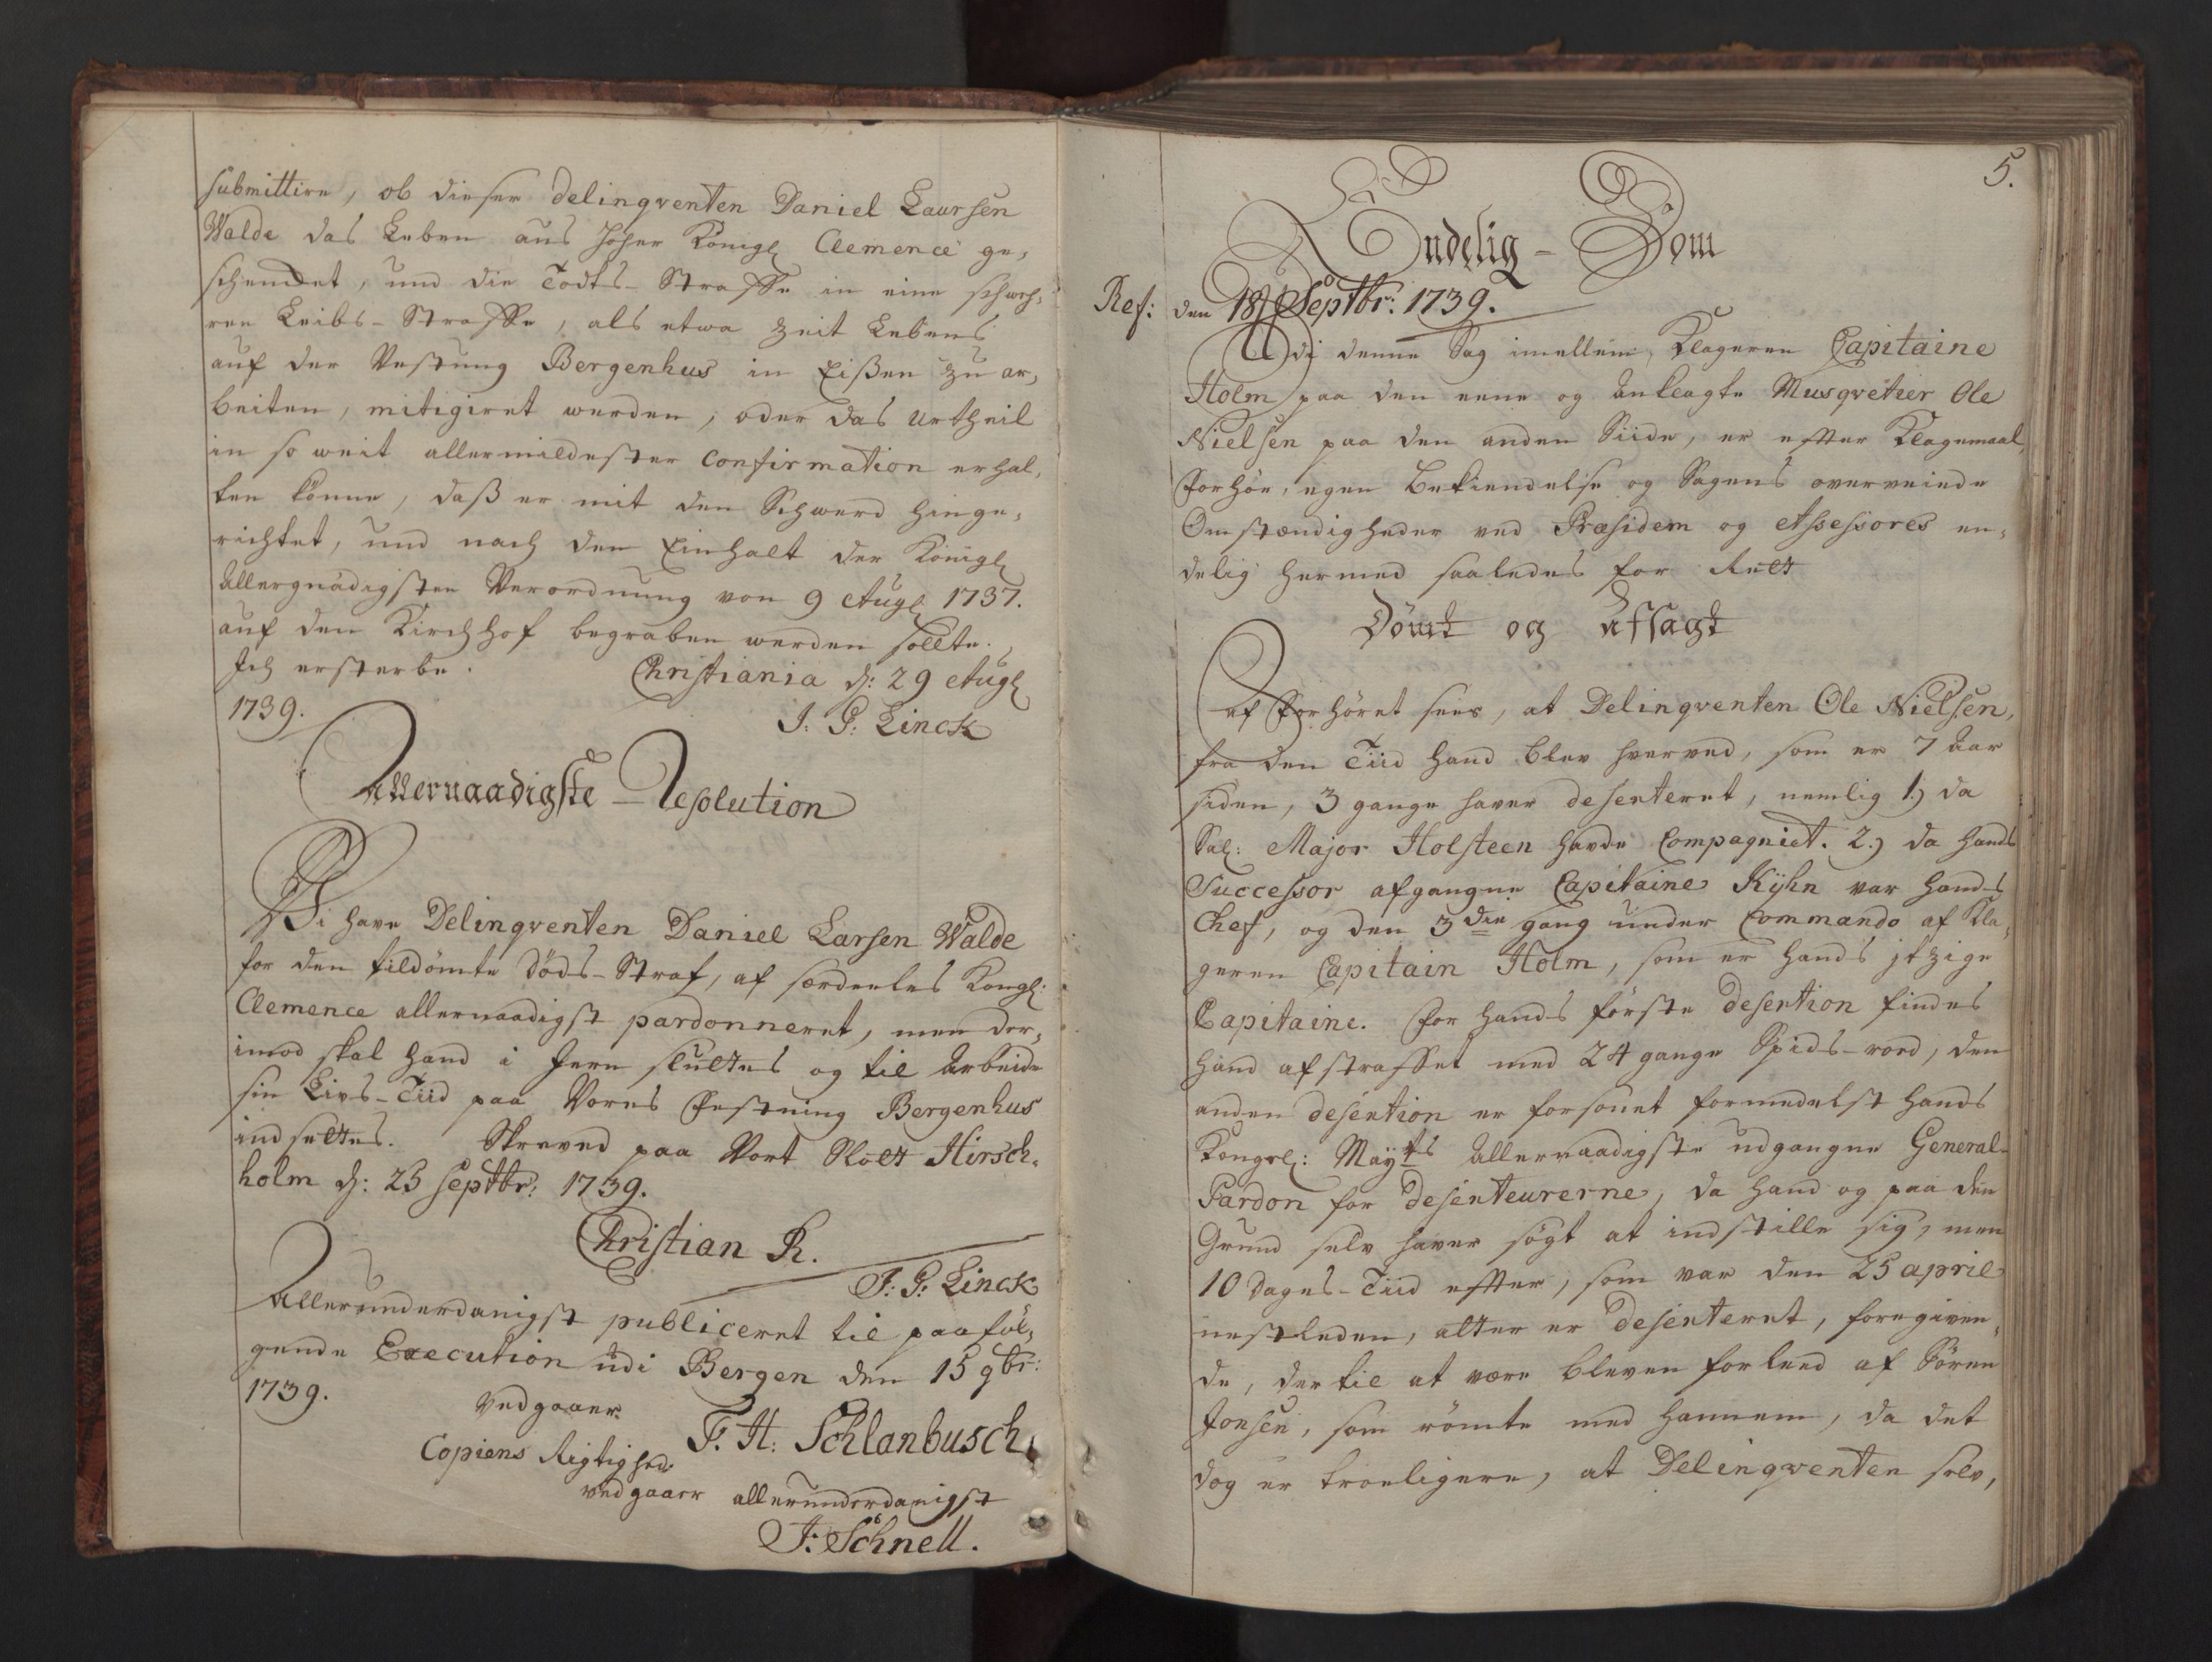 submittire, ob dieser delinqventen Daniel Laursen
Walde das Leben aus Hoher Königl Clemence ge,
schencket, und die Todts-Straffe in eine schweh,
ren Leibs-Straffe, als etwa Zeit Lebens
auf der Vestung Bergenhus in Eißen zu ar,
beiten, mitigiret werden, oder das Urtheil
in so weit allermildester Confirmation erhal,
ten könne, daß er mit den Schwerd hinge,
richtet, und nach dem Einhalt der Königl
Allergnädigsten Verordnung von 9 Augl 1737.
auf den Kirchhof begraben werden sollte.
Ich ersterbe. Christiania d: 29 Augl
1739.
J: G: Linck
Allernaadigste-Resolution
Wi have Delinqventen Daniel Larsen Walde
for den tildömte Döds-Straf, af særdeeles Kongl:
Clemence allernaadigst pardonneret, men der,
imod skal hand i Jern sluttes og til Arbeide
sin Livs-Tiid paa Vores Fæstning Bergenhus
indsættes. Skreved paa Vort Slott Hirsch,
holm d: 23 Septbr: 1739.
Christian R.
J: G: Linck
Allerunderdanigst publiceret til paaföl,
gende Execution udi Bergen den 15 9br:
1739.
Vedgaaer
F. H: Schlanbusch.
Copiens Rigtighed
vedgaaer allerunderdanigst
J: Schnell.
5.
Endelig-Dom
Ref: den 18 Septbr: 1739.
Udi denne Sag imellem Klageren Capitaine
Holm paa den eene og Anklagte Musqvetier Ole
Nielsen paa den anden Siide, er efter Klagemaal,
Forhör, egen Bekiendelse og Sagens overveiede
Omstændigheder ved Præsidem og Assessores en,
delig hermed saaledes for Rett
Dömt og Afsagt
Af Forhöret sees, at Delinqventen Ole Nielsen,
fra den Tiid hand blev hverved, som er 7 Aar
siden, 3 gange haver deserteret, nemlig 1.) da
Sal: Major Holsteen havde Compagniet. 2.) da hands
Successor afgangne Capitaine Kÿhn var hands
Chef, og den 3die gang under Commando af Kla,
geren Capitain Holm, som er hands jtzige
Capitaine. For hands förste Desertion findes
hand afstraffet med 24 gange Spids-rood, den
anden desertion er forsonet formedelst Hands
Kongel: Maÿts Allernaadigste udgangne General-
Pardon for Deserteurerne, da hand og paa den
Grund selv haver sögt at indstille sig, men
10 Dages-Tiid efter, som var den 25 april
nestleden, atter er deserteret, foregiven,
de, dertil at være bleven forleed af Sören
Jonsen, som römte med hannem, da det
dog er troeligere, at Delinqventen selv,